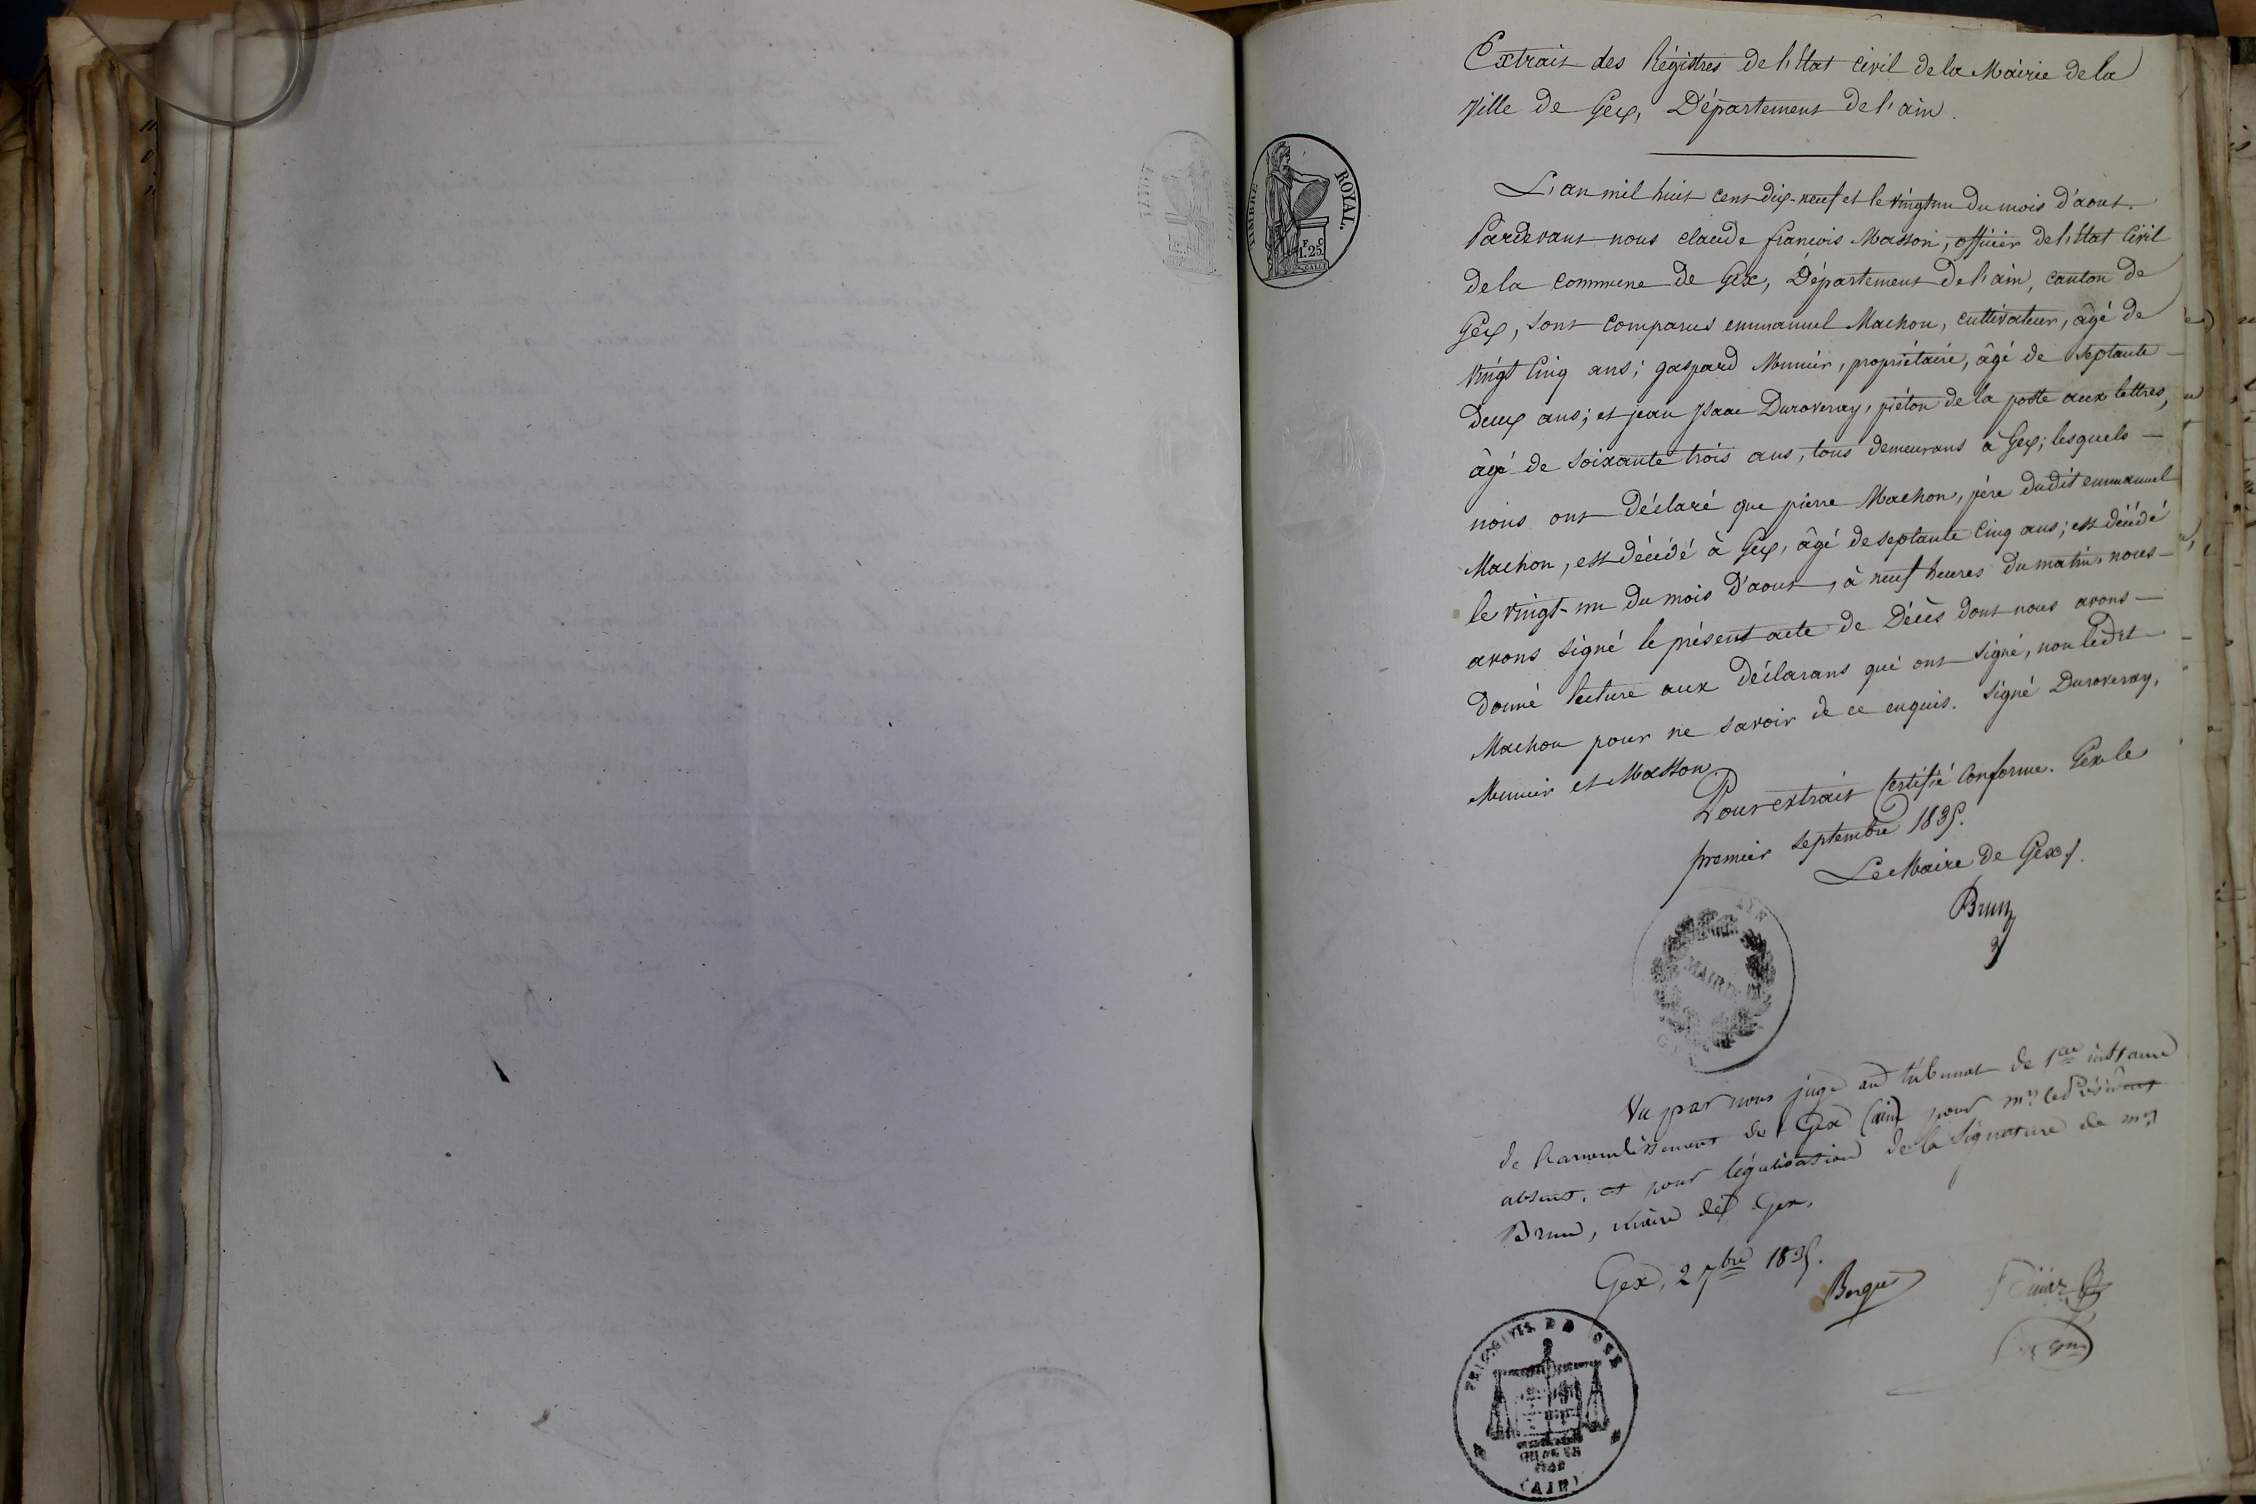 Extrait des Régistres de l'Etat Civil de la Mairie de la
Ville de Gex, Département de l'ain.
TIMBRE ROYAL.
F C
1.25
L'an mil huit cent dix-neuf et le vingt un du mois d'aout.
Pardevant nous claude françois Masson, officier de l'Etat Civil
de la commune de Gex, Département de l'ain, canton de
Gex, sont comparus emmanuel Machon, cultivateur, âgé de
vingt cinq ans; gaspard Munier, propriétaire, âgé de septante
deux ans; et jean jsaac Duroveray, piéton de la poste aux lettres,
âgé de soixante trois ans, tous demeurans à Gex; lesquels
nous ont déclaré que pierre Machon, père dudit emmanuel
Machon, est décédé à Gex, âgé de septante cinq ans; est décédé
le vingt-un du mois d'aout, à neuf heures du matin, nous
avons signé le présent acte de Décès dont nous avons
donné lecture aux déclarans qui ont signé, non ledit
Machon pour ne savoir de ce enquis. Signé Duroveray,
Munier et Masson
Pour extrait certifié conforme. Gex le
premier septembre 1835.
Le Maire de Gex,
Brun
MAIRIE
Vu par nous juge au tribunal de 1ere instance
de l'arrondissement de Gex (ain) pour mr le Président
absent, et pour légalisation de la signature de mr
Brun, maire de Gex,
Gex, 2 7bre 1835.
(AIN)